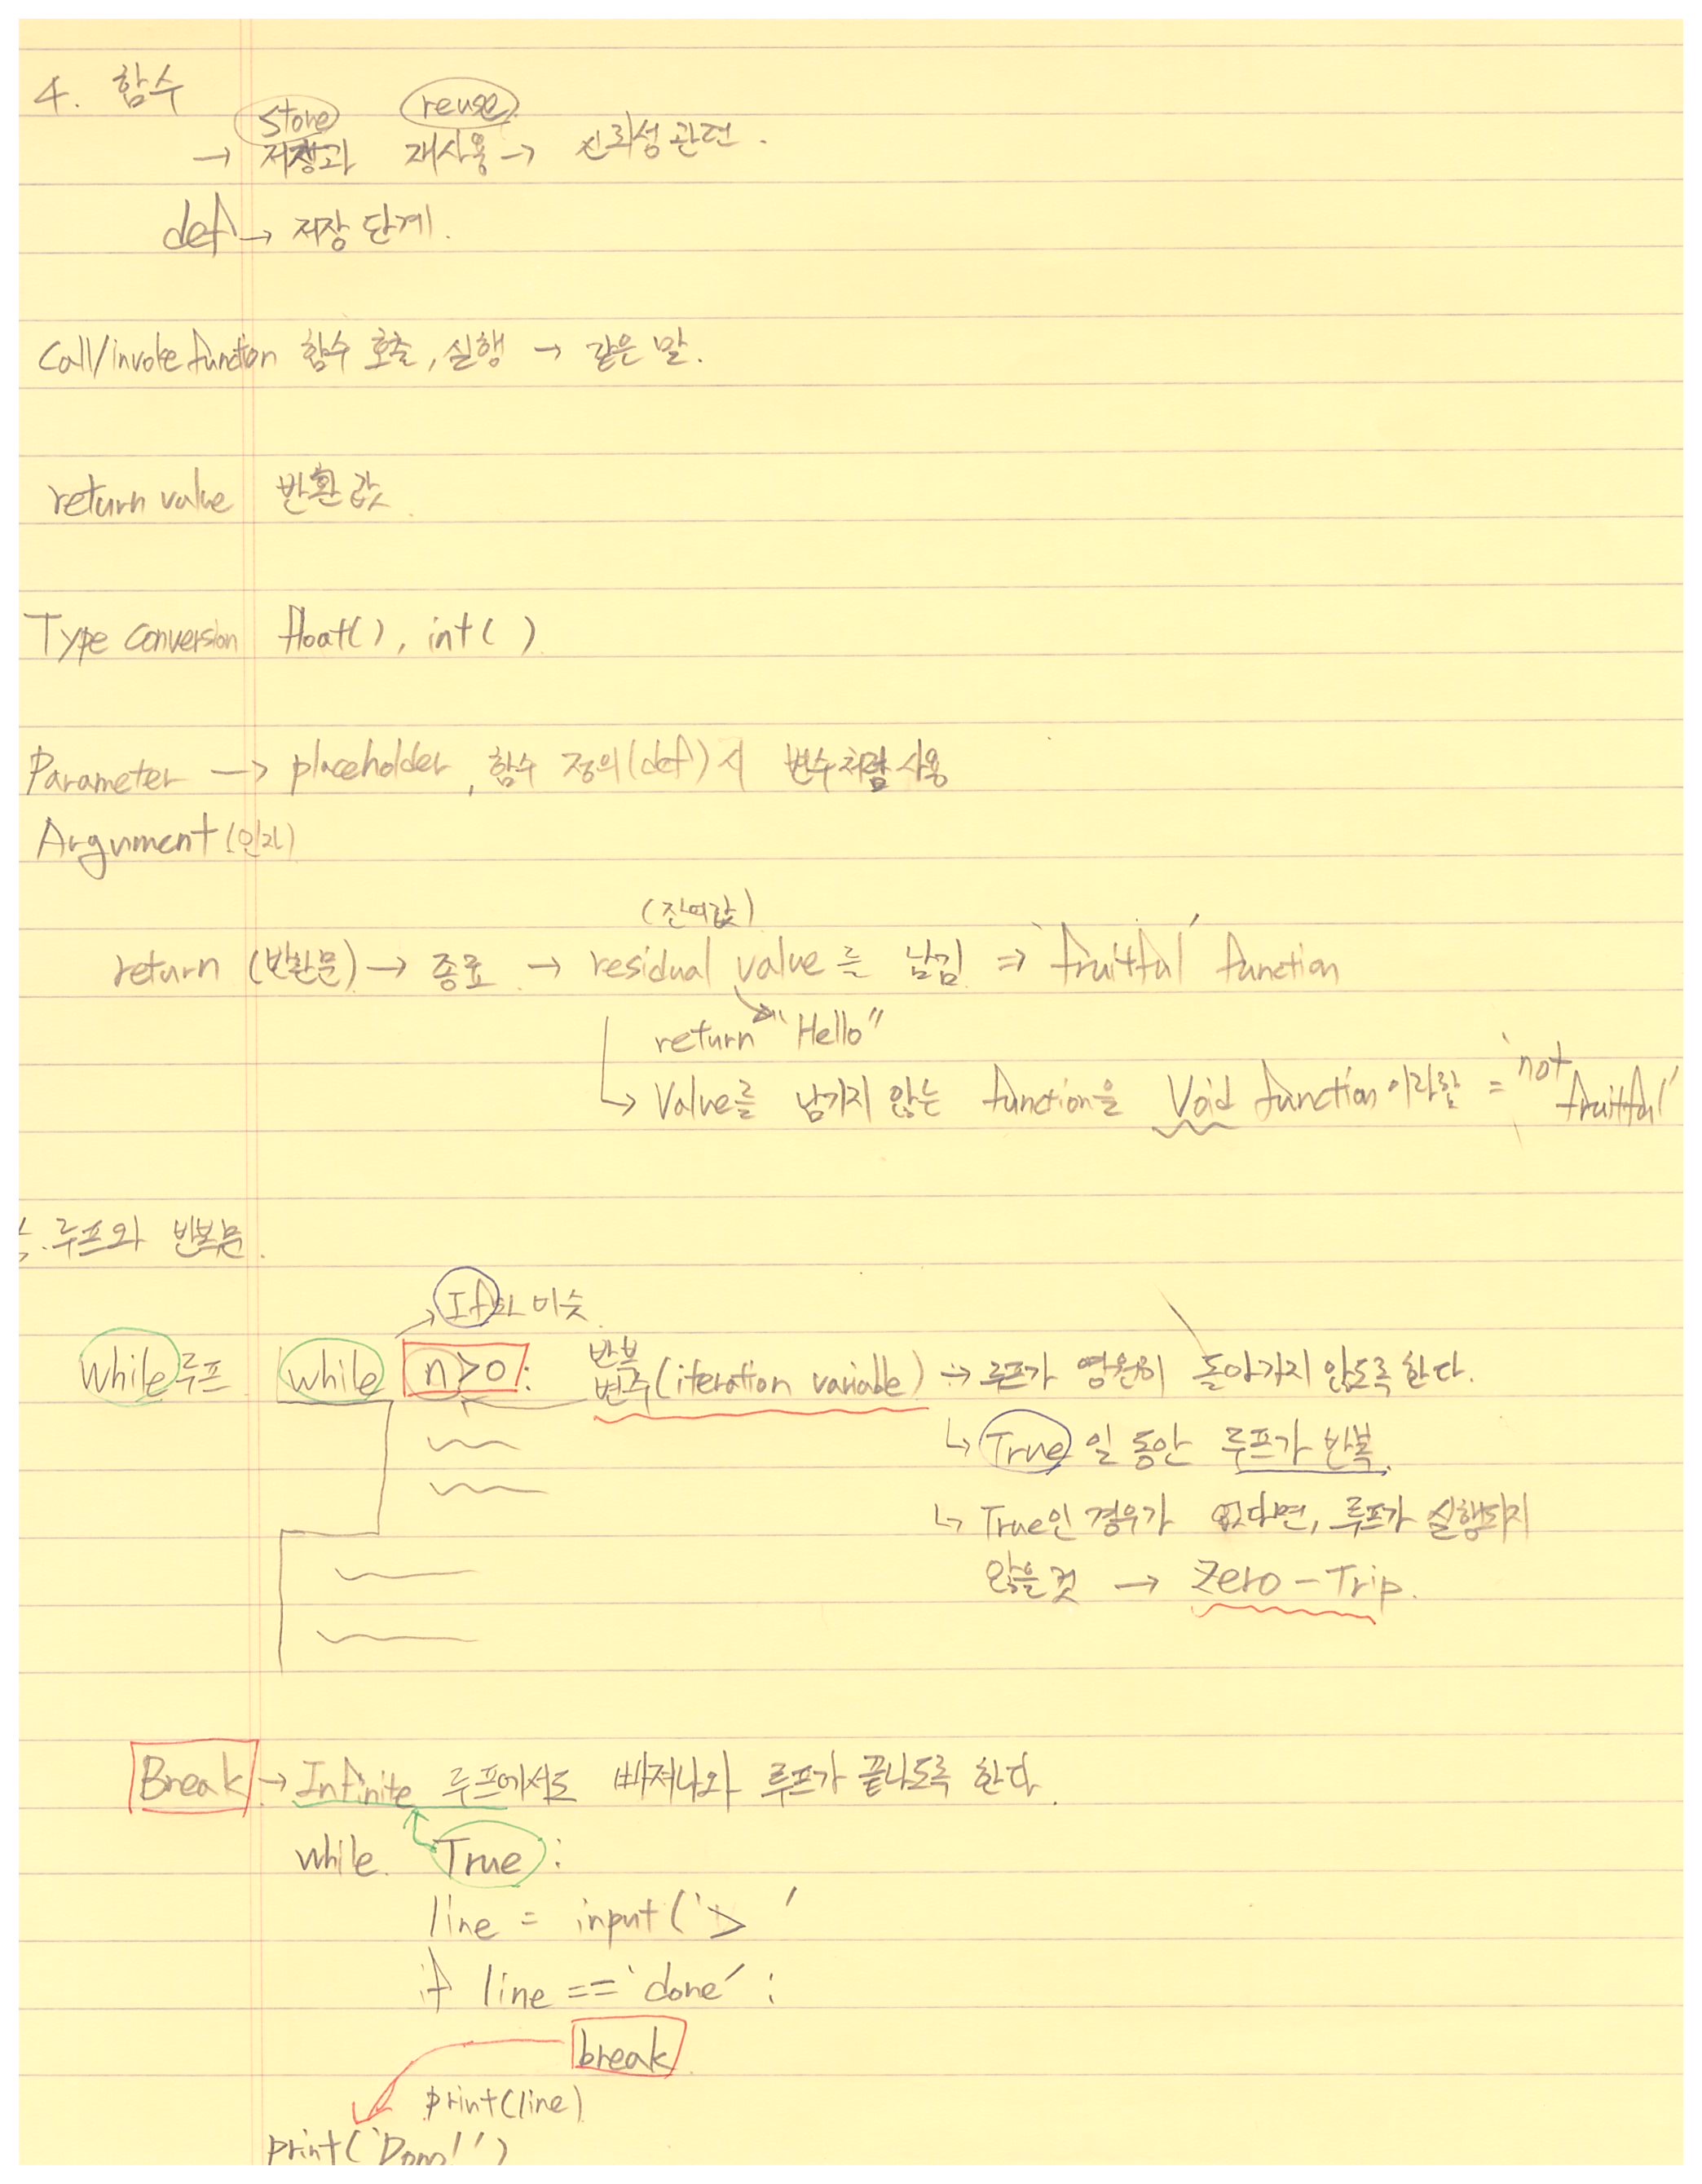 4. 함수
store reuse
→ 저장과 재사용 → 신뢰성 관련.
def → 저장 단계.
Call/invoke function 함수 호출, 실행 → 같은 말.
return value 반환 값
Type conversion float(), int( )
Parameter → placeholder, 함수 정의(def)시 변수처럼 사용
Argument (인자)
(잔여값)
return (반환문) → 종료 → residual value를 남김 ⇒ 'fruitful' function
return "Hello"
↳ Value를 남기지 않는 function을 Void function이라함 = 'not fruitful'
루프와 반복문.
If와 비슷
while 루프 while n>0: 반복변수(iteration variable) → 루프가 영원히 돌아가지 않도록 한다.
↳ True일 동안 루프가 반복.
↳ True인 경우가 없다면, 루프가 실행되지
않을 것 → Zero-Trip.
Break → Infinite 루프에서도 빠져나와 루프가 끝나도록 한다.
while True :
line = input('> '
if line == 'done' :
break
print(line)
print('Done!')